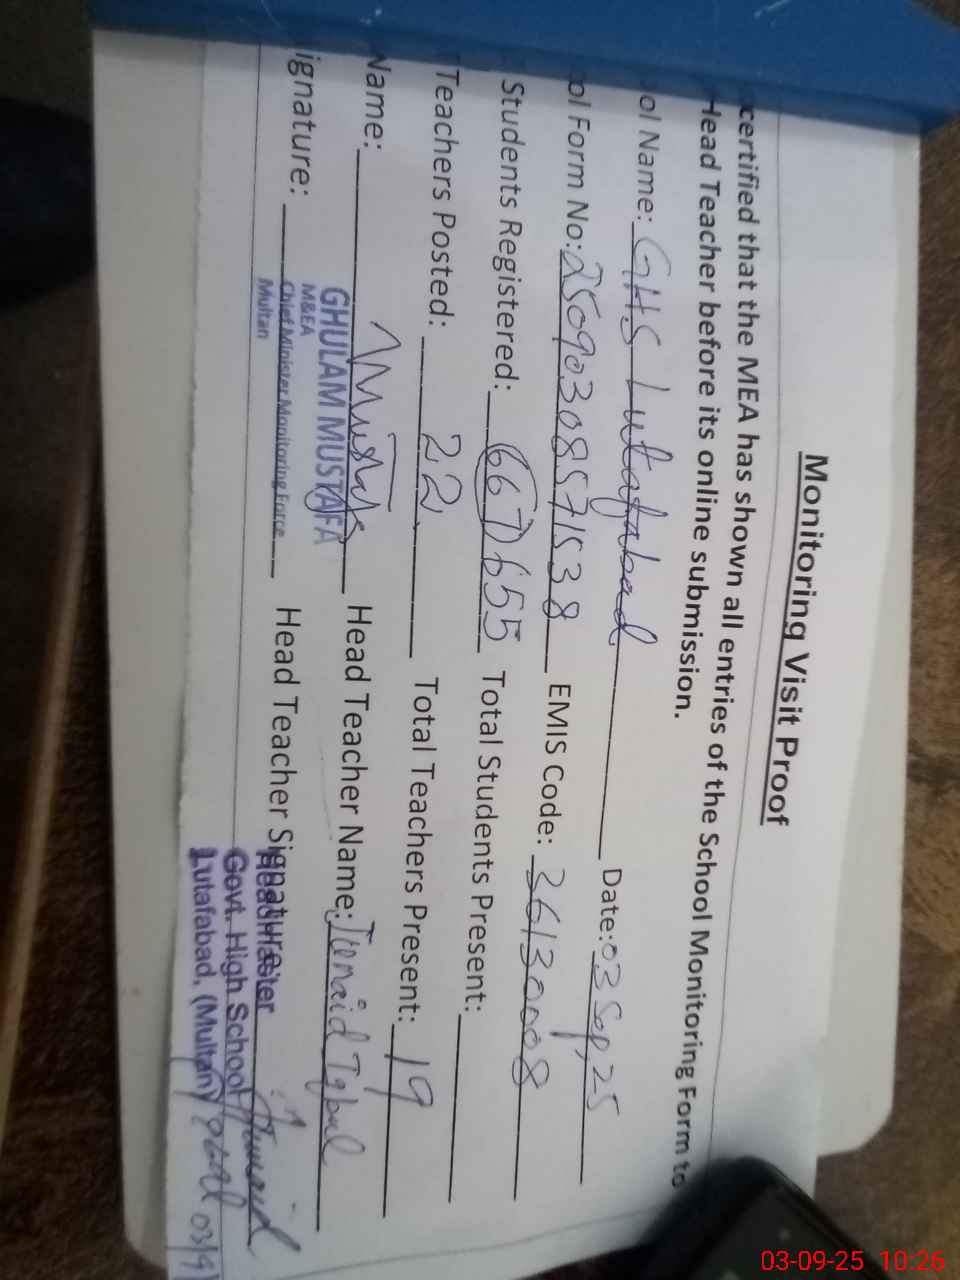 Monitoring Visit Proof
certified that the MEA has shown all entries of the School Monitoring Form to
Head Teacher before its online submission.
ol Name: GHS Lutafabad Date: 03 Sep, 25
ol Form No: 25090308571538 EMIS Code: 36130008
Students Registered: 667 655 Total Students Present:
Teachers Posted: 22 Total Teachers Present: 19
Name: Head Teacher Name: Junaid Iqbal
GHULAM MUSTAFA
M&EA
ignature: Chief Minister Monitoring Force Head Teacher Signature:
Multan
Headmaster
Govt. High School
Lutafabad, (Multan)
03/9
03-09-25 10:26